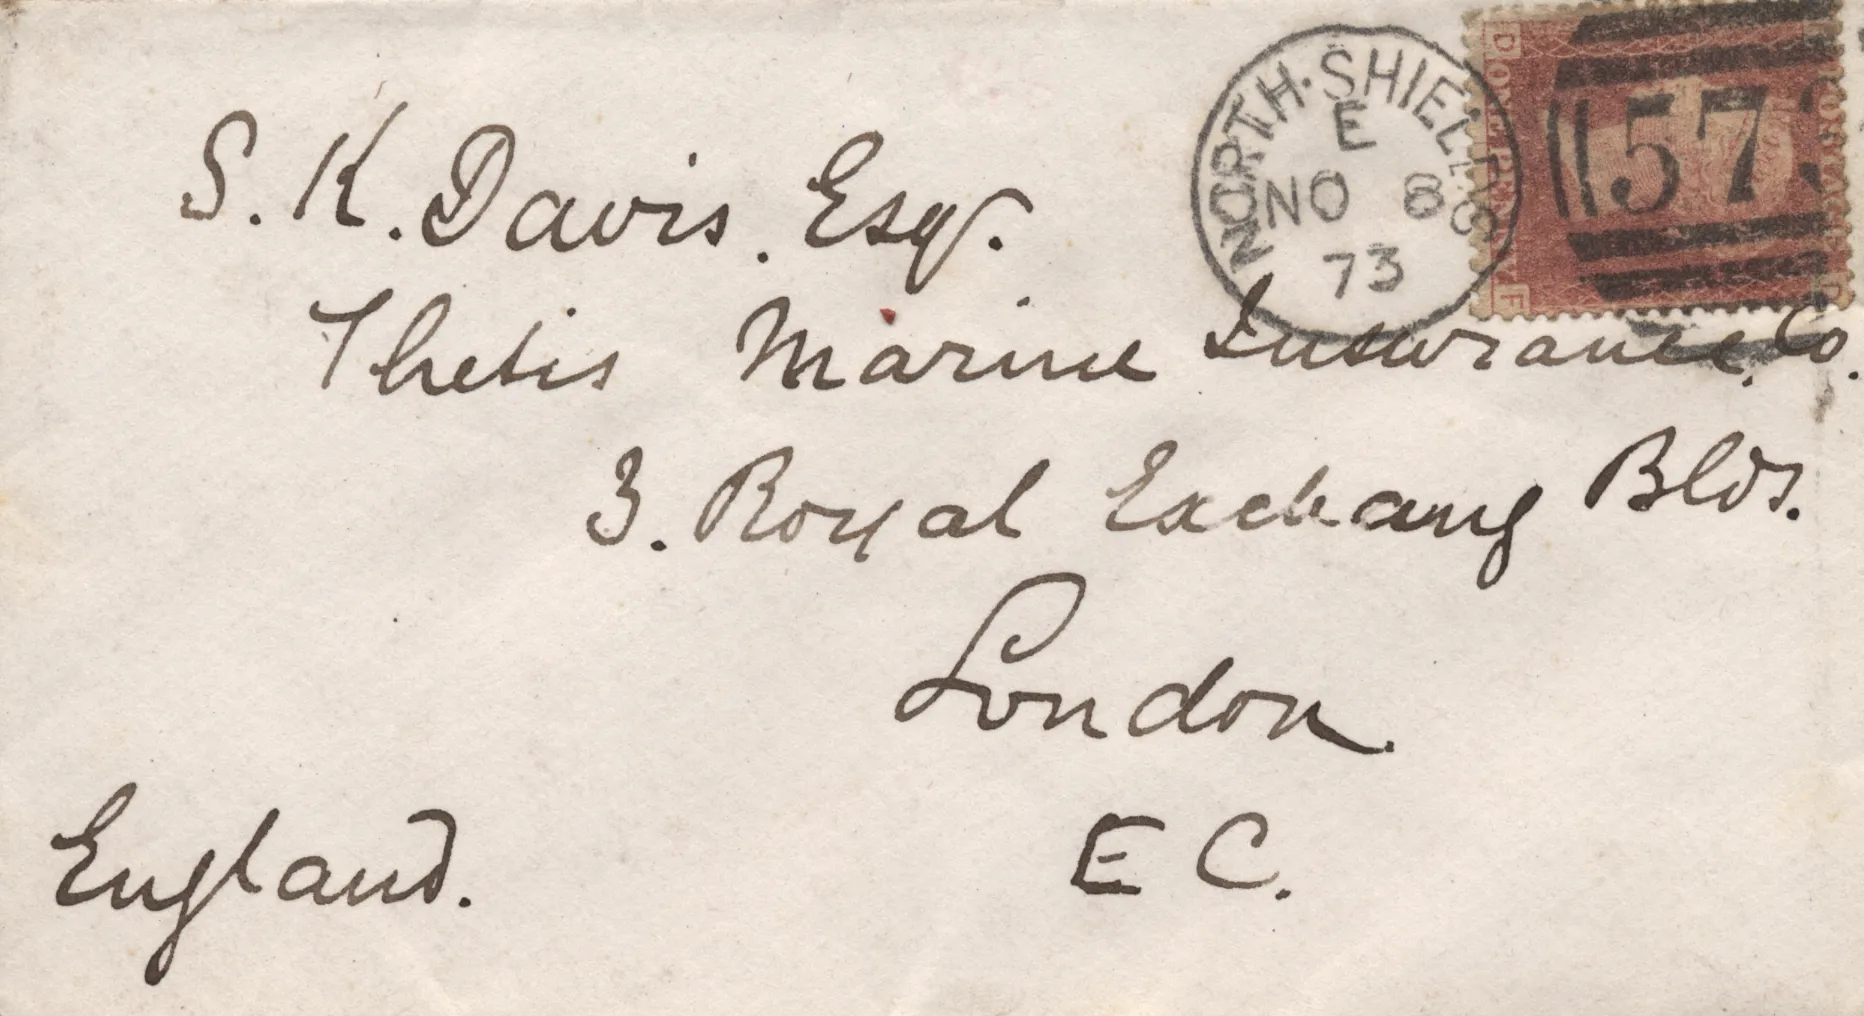 S. K. Davis. Esq.
Thetis Marine Insurance Co.
3. Royal Exchang Blds.
London.
E C.
England.
NORTH·SHIELDS
E
NO 8
73
573
ONE PENNY
D
F